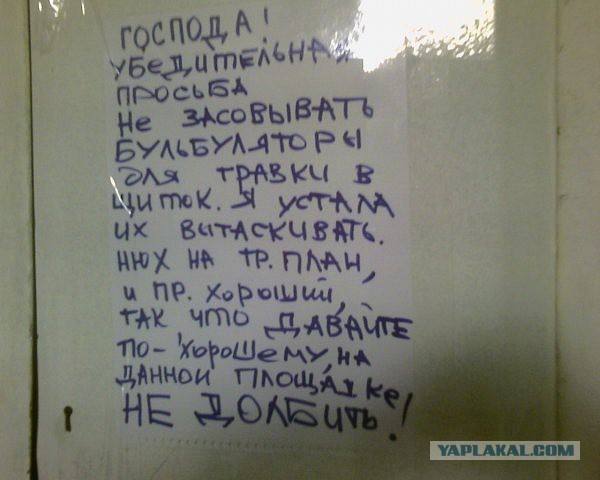 ГОСПОДА!
УБЕДИТЕЛЬНАЯ
ПРОСЬБА
НЕ ЗАСОВЫВАТЬ
БУЛЬБУЛЯТОРЫ
ДЛЯ ТРАВКИ В
ЩИТОК. Я УСТАЛА
ИХ ВЫТАСКИВАТЬ.
НЮХ НА ТР. ПЛАН,
И ПР. ХОРОШИЙ,
ТАК ЧТО ДАВАЙТЕ
ПО-ХОРОШЕМУ, НА
ДАННОЙ ПЛОЩАДКЕ
НЕ ДОЛБИТЬ!
YAPLAKAL.COM